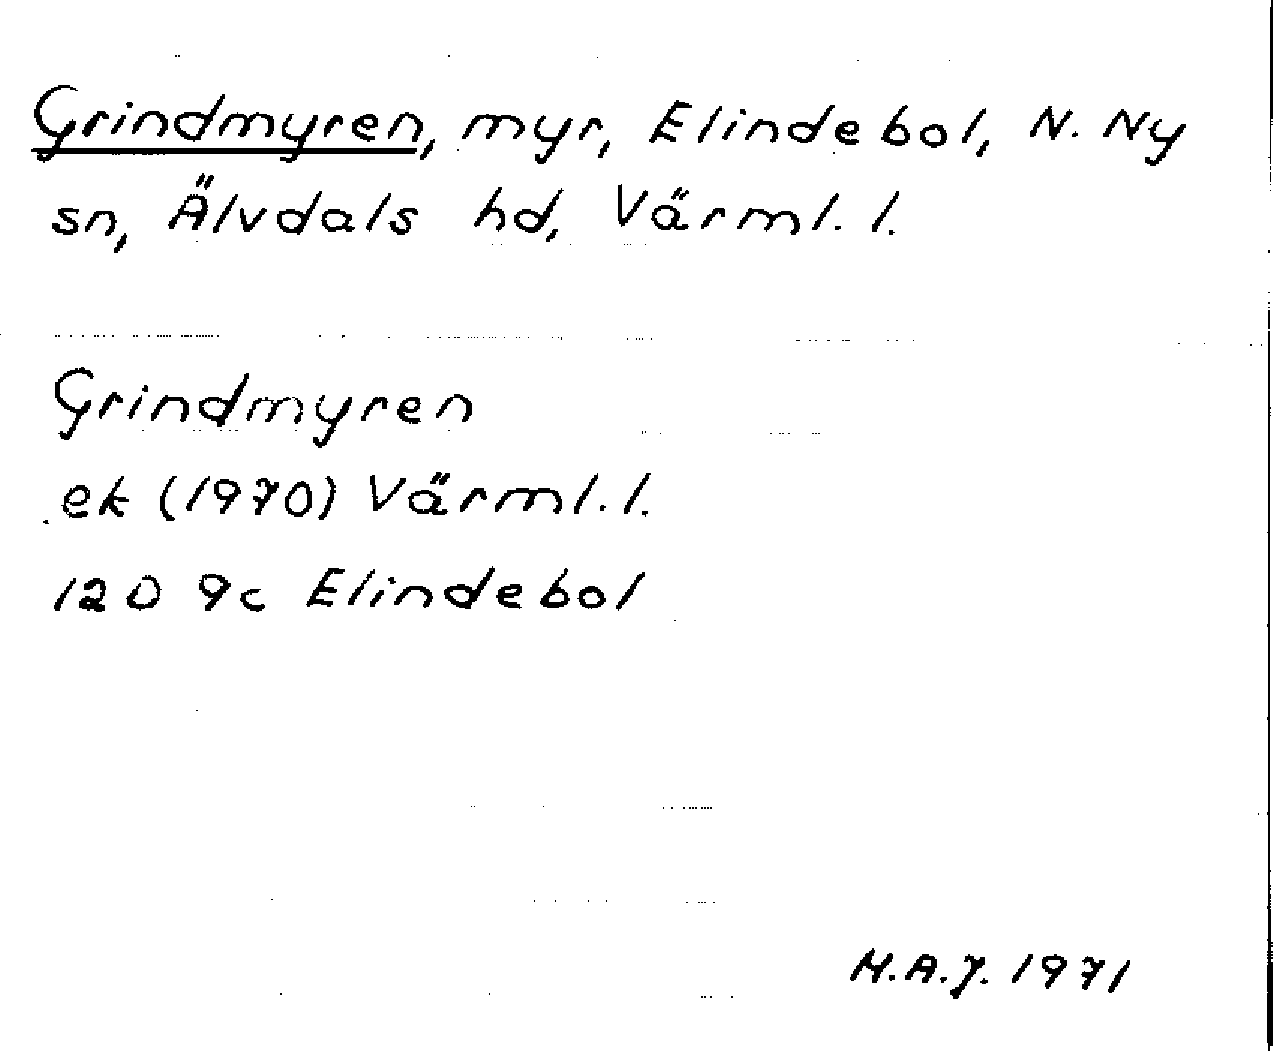 Grindmyren, myr, Elindebol, N. Ny
sn, Älvdals hd, Värml. l.
Grindmyren
ek (1970) Värml. l.
12D 9c Elindebol
H.A.J. 1971